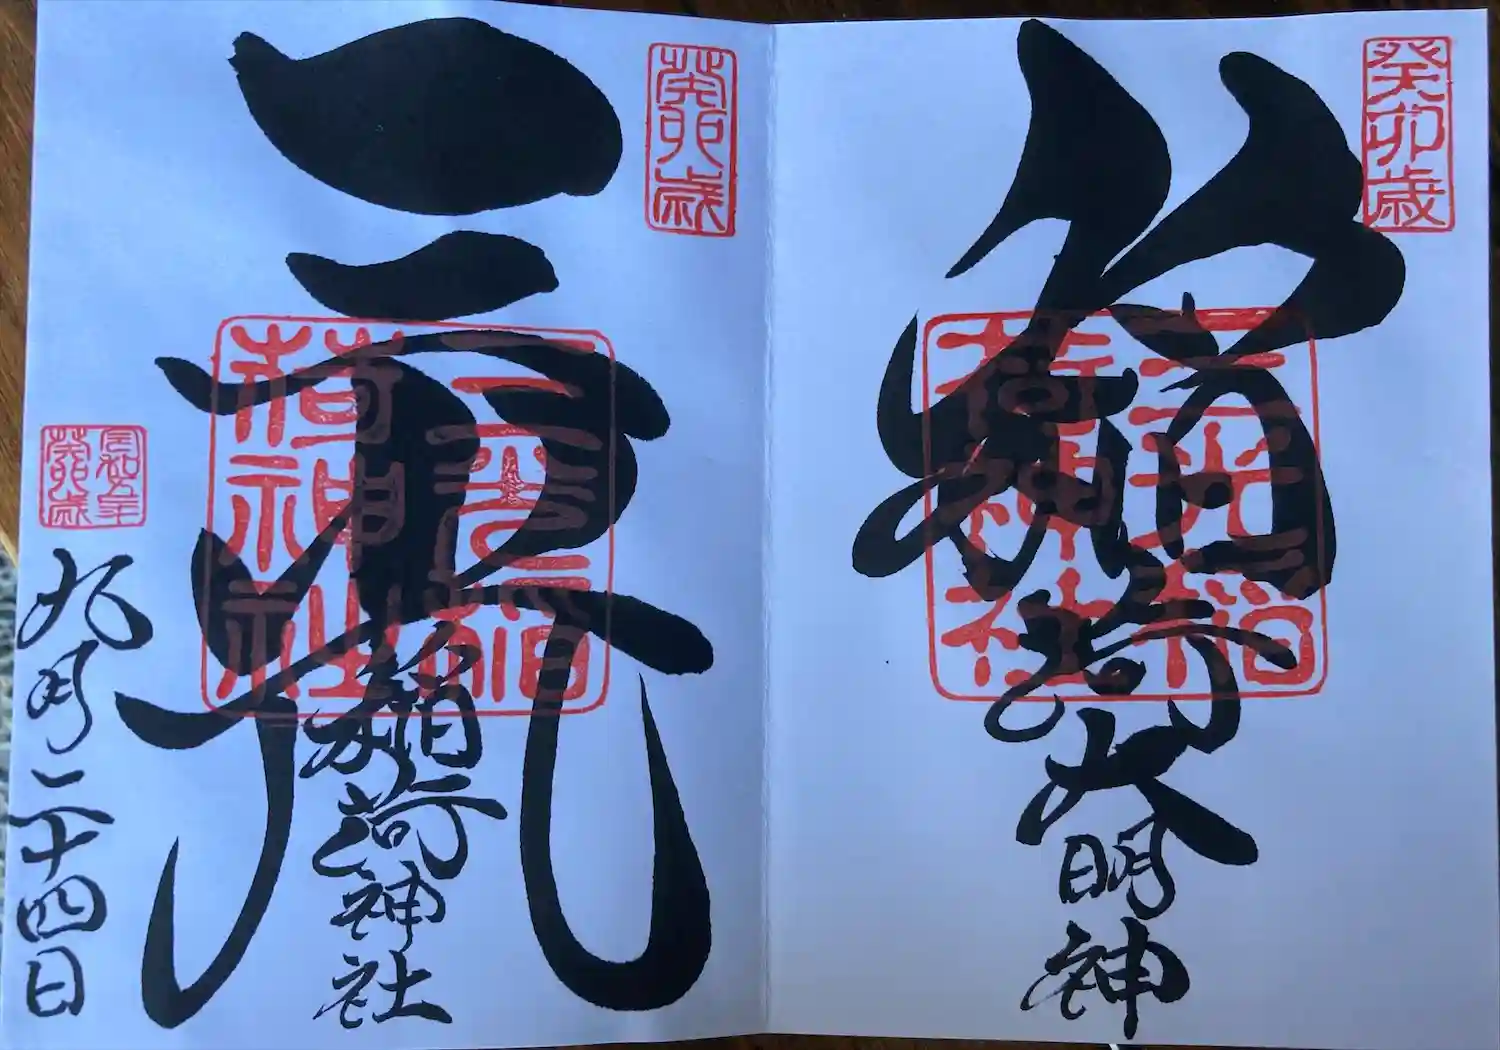 癸卯歳
稲荷大明神
三光稲荷神社
癸卯歳
三光
稲荷神社
三光稲荷神社
令和五年
癸卯歳
九月二十四日